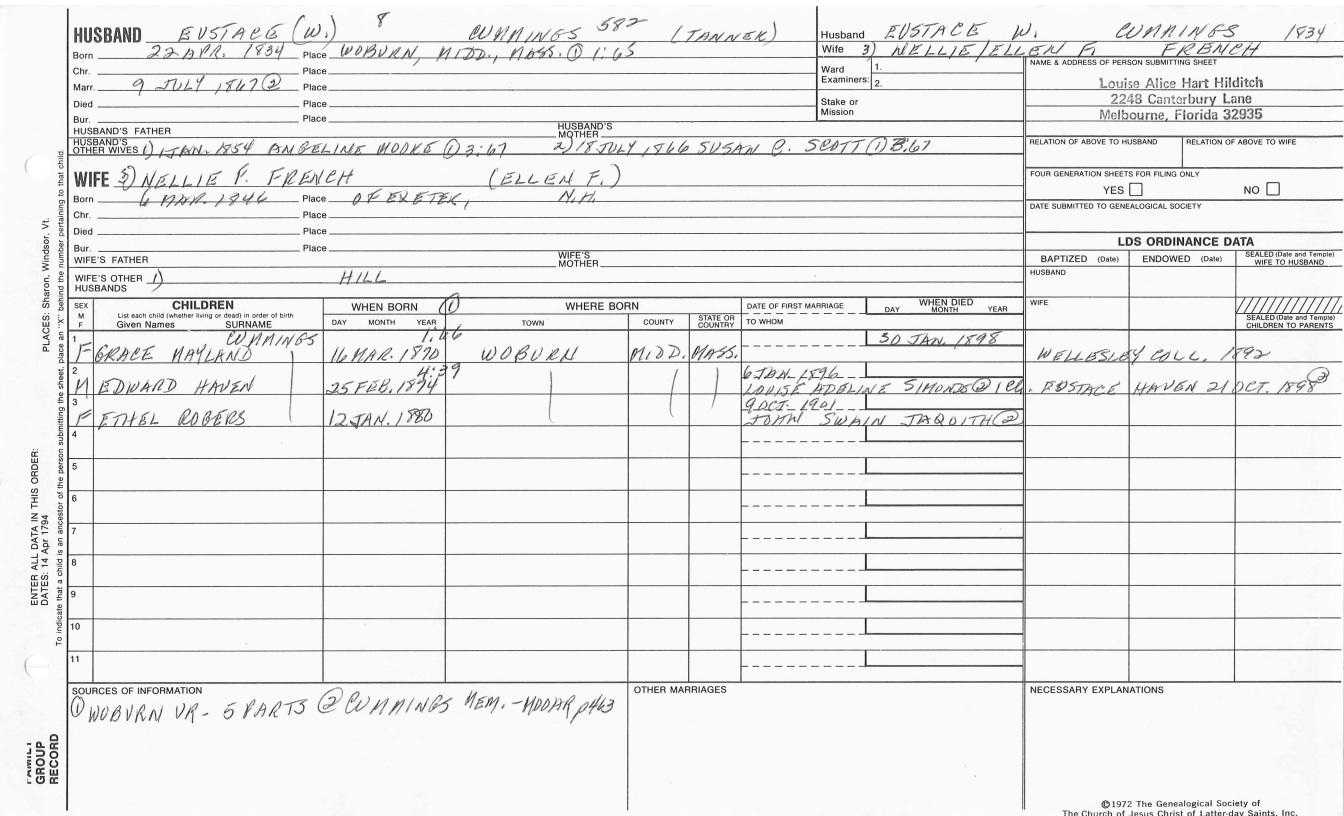 HUSBAND EUSTACE (W.) 8 CUMMINGS 582 (TANNER)
Born 22 APR. 1834 Place WOBURN, MIDD., MASS. ① 1:65
Chr. Place
Marr. 9 JULY 1867 ② Place
Died Place
Bur. Place
HUSBAND'S FATHER HUSBAND'S MOTHER
HUSBAND'S OTHER WIVES 1) 1 JAN. 1854 ANGELINE MOORE ① 3:67 2) 18 JULY 1866 SUSAN C. SCOTT ① 3:67
WIFE 3) NELLIE F. FRENCH (ELLEN F.)
Born 6 MAR. 1846 Place OF EXETER, N.H.
Chr. Place
Died Place
Bur. Place
WIFE'S FATHER WIFE'S MOTHER
WIFE'S OTHER HUSBANDS 1) HILL
Husband EUSTACE W. CUMMINGS 1834
Wife 3) NELLIE/ELLEN F. FRENCH
Ward Examiners: 1.
2.
Stake or Mission
NAME & ADDRESS OF PERSON SUBMITTING SHEET
Louise Alice Hart Hilditch
2248 Canterbury Lane
Melbourne, Florida 32935
RELATION OF ABOVE TO HUSBAND RELATION OF ABOVE TO WIFE
FOUR GENERATION SHEETS FOR FILING ONLY
YES NO
DATE SUBMITTED TO GENEALOGICAL SOCIETY
LDS ORDINANCE DATA
BAPTIZED (Date) ENDOWED (Date) SEALED (Date and Temple) WIFE TO HUSBAND
HUSBAND
WIFE
SEALED (Date and Temple) CHILDREN TO PARENTS
SEX M F CHILDREN WHEN BORN ① WHERE BORN DATE OF FIRST MARRIAGE WHEN DIED
List each child (whether living or dead) in order of birth
Given Names SURNAME DAY MONTH YEAR TOWN COUNTY STATE OR COUNTRY TO WHOM DAY MONTH YEAR
1 CUMMINGS 1:46 30 JAN. 1898
F GRACE MAYLAND 16 MAR. 1870 WOBURN MIDD. MASS. WELLESLEY COLL. 1892
2 4:39 6 JAN. 1896
M EDWARD HAVEN 25 FEB. 1874 LOUISE ADELINE SIMONDS ② 1 CH. EUSTACE HAVEN 21 OCT. 1898 ②
3 9 OCT. 1901
F ETHEL ROGERS 12 JAN. 1880 JOHN SWAIN JAQUITH ②
4
5
6
7
8
9
10
11
SOURCES OF INFORMATION
① WOBURN VR- 5 PARTS ② CUMMINGS MEM. -MOOAR p463
OTHER MARRIAGES
NECESSARY EXPLANATIONS
©1972 The Genealogical Society of
The Church of Jesus Christ of Latter-day Saints, Inc.
PLACES: Sharon, Windsor, Vt.
To indicate that a child is an ancestor of the person submitting the sheet, place an "X" behind the number pertaining to that child.
ENTER ALL DATA IN THIS ORDER:
DATES: 14 Apr 1794
FAMILY GROUP RECORD